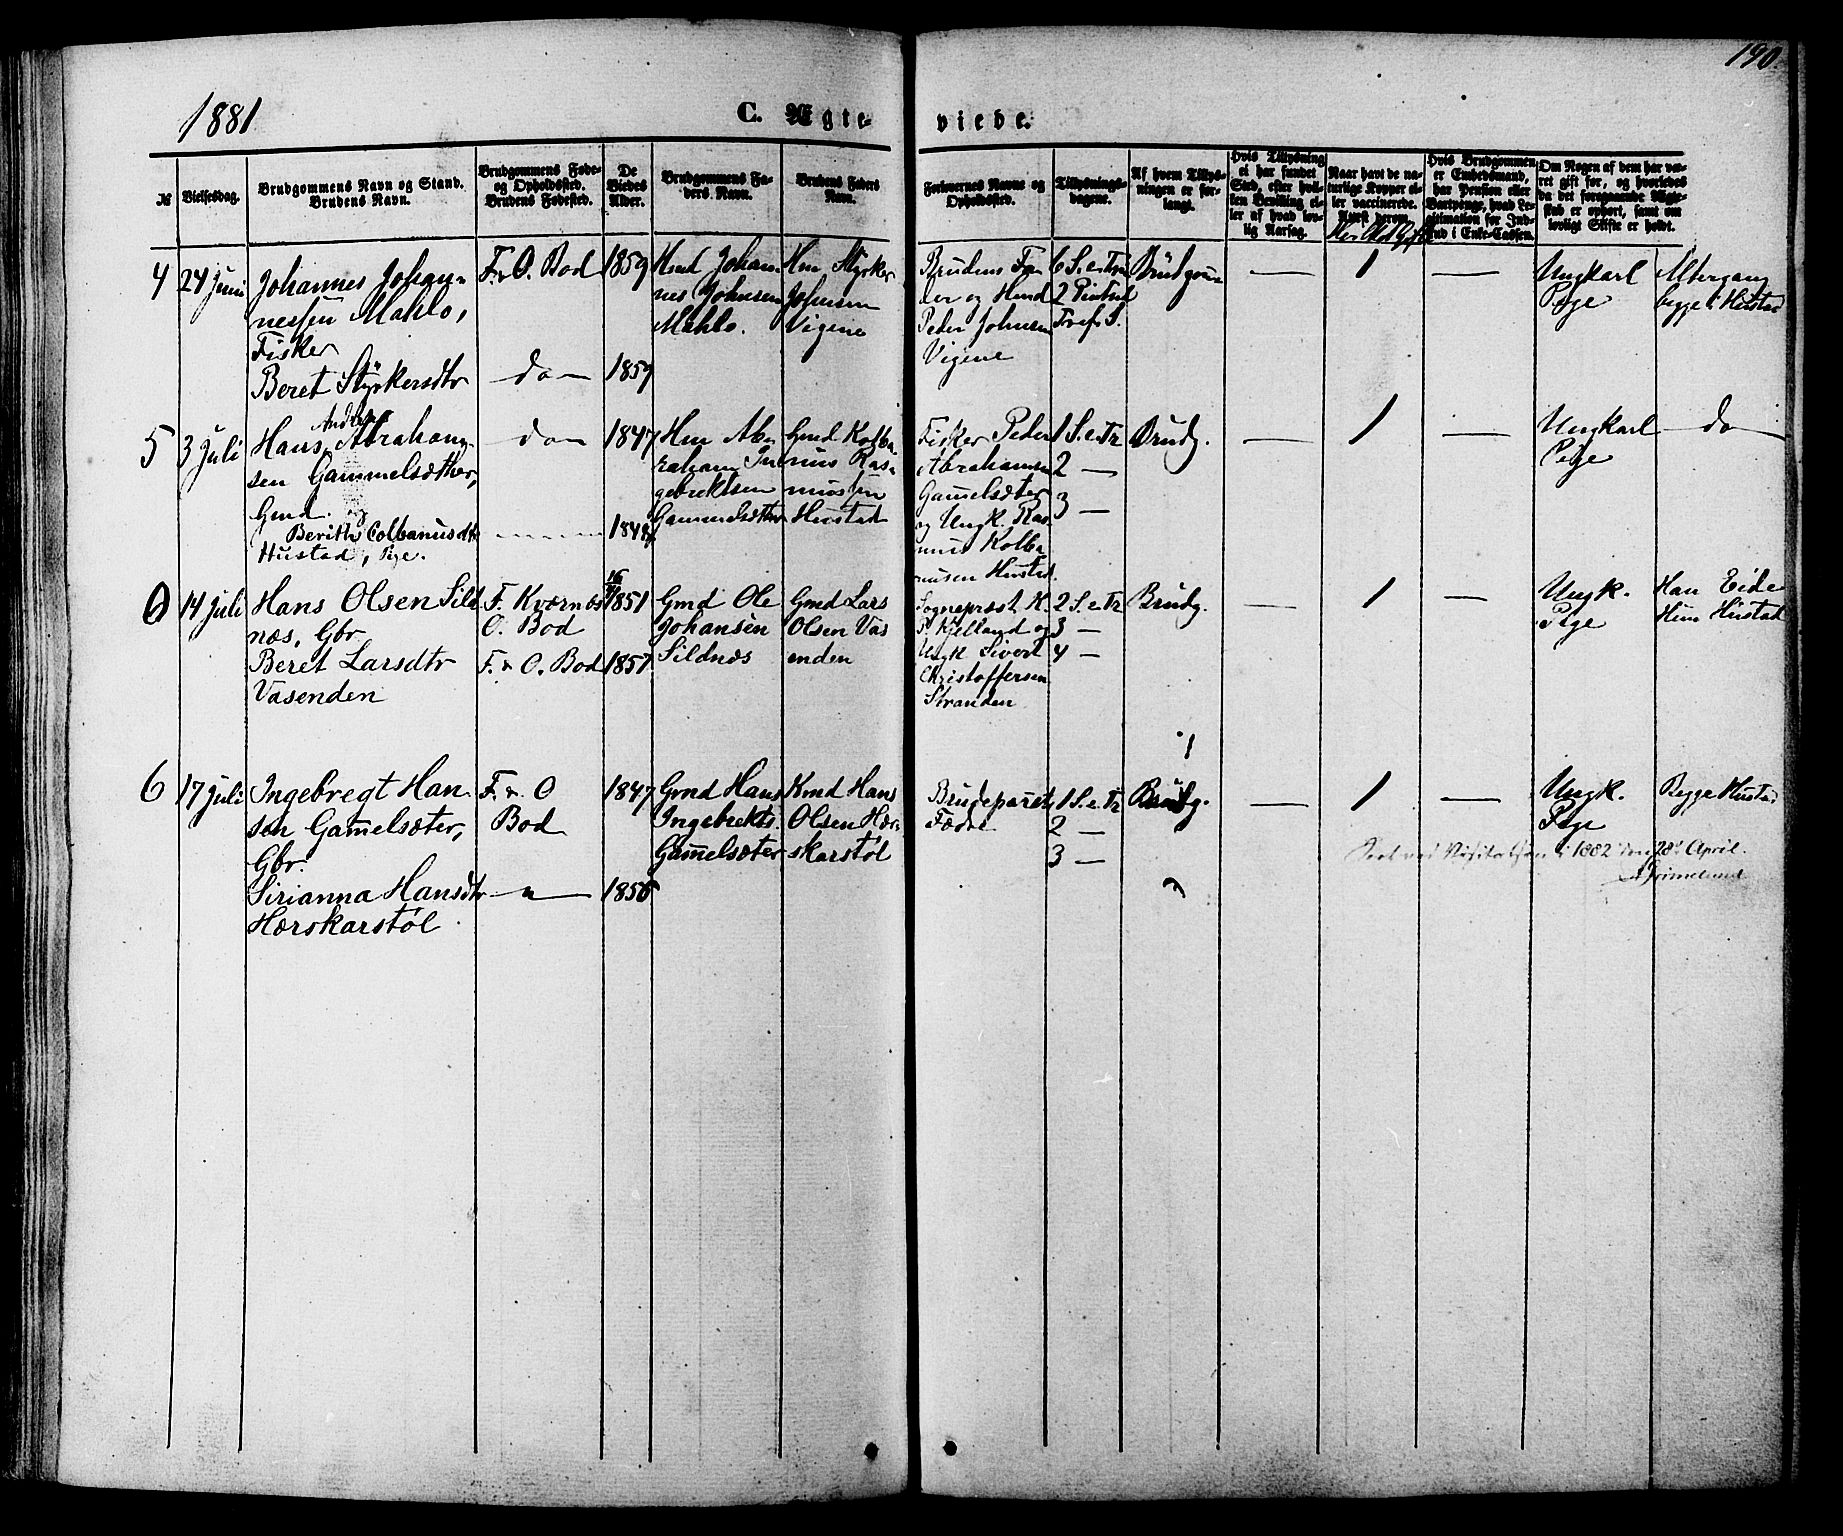 190.
1881
C. Ægte-
viede.
№
Vielsesdag.
Brudgommens Navn og Stand.
Brudens Navn.
Brudgommens Føde-
og Opholdssted.
Brudens Fødested.
De
Viedes
Alder.
Brudgommens Fa-
ders Navn.
Brudens Faders
Navn.
Forlovernes Navne og
Opholdssted.
Tillysnings-
dagene.
Af hvem Tillys-
ningen er for-
langt.
Hvis Tillysning
ei har fundet
Sted, efter hvil-
ken Bevilling el-
ler af hvad lov-
lig Aarsag.
Naar havt de na-
turlige Kopper el-
ler vaccinerede.
Attest derom
Hvis Brudgommen
er Embedsmand,
har Pension eller
Vartpenge, hvad Le-
gitimation for Ind-
skud i Enke-Cassen.
Om Nogen af dem har væ-
ret gift før, og hvorledes
da det foregaaende Ægte-
skab er ophørt, samt om
lovlig Skifte er holdt.
4
24 Juni
Johannes Johan-
nessen Mahlo,
Fisker
Beret Styrkersdtr
F. & O. Bod
do
1859
1859
Hmd Johan
nes Johnsen
Mahlo.
Hm Styrker
Johnsen
Vigene
Brudens Fa
der og Hmd
Peter Johnsen
Vigene
6 S. e. Trin
2 Pintsd
Tref. S.
Brudgom
—
1
—
Ungkarl
Pige
Altergang
begge i Hustad
5
3 Juli
Anders
Hans Abraham
sen Gammelsæther,
Gmd.
Berith Colbanusdtr
Hustad, Pge.
do
1847
1848
Hm Ab
raham In
gebrektsen
Gammelsæther
Gmd Kolba
nus Ras
mussen
Hustad
Fisker Peder
Abrahamsen
Gamelsæter
og Ungk. Ras
mus Kolba
nusen Hustad.
1 S. e. Tr
2 —
3 —
Brudg.
—
1
—
Ungkarl
Pige
do
14 Juli
Hans Olsen Sild
næs, Gbr.
Beret Larsdtr
Vasenden
F. Kværnes
O. Bod
F. & O. Bod
1851
1857
Gmd Ole
Johansen
Sildnæs
Gmd Lars
Olsen Vas
enden
Sognepræst H.
P. Kjelland og
Ungk Sivert
Christoffersen
Stranden
2 S. e. Tr
3 —
4 —
Brudg.
—
1
—
Ungk.
Pige
Han Eide
Hun Hustad
6
17 Juli
Ingebregt Han
sen Gamelsæter,
Gbr.
Sirianna Hansdtr
Hærskarstøl
F. & O
Bod
1847
1856
Gmd Hans
Ingebrekts.
Gamelsæter
Kmd Hans
Olsen Hær
skarstøl
Brudeparets
Fædre
1 S. e. Tr
2 —
3 —
Brudg.
—
1
—
Ungk.
Pige
Begge Hustad
Seet ved Visitatsen i 1882 den 28de April.
Grimelund